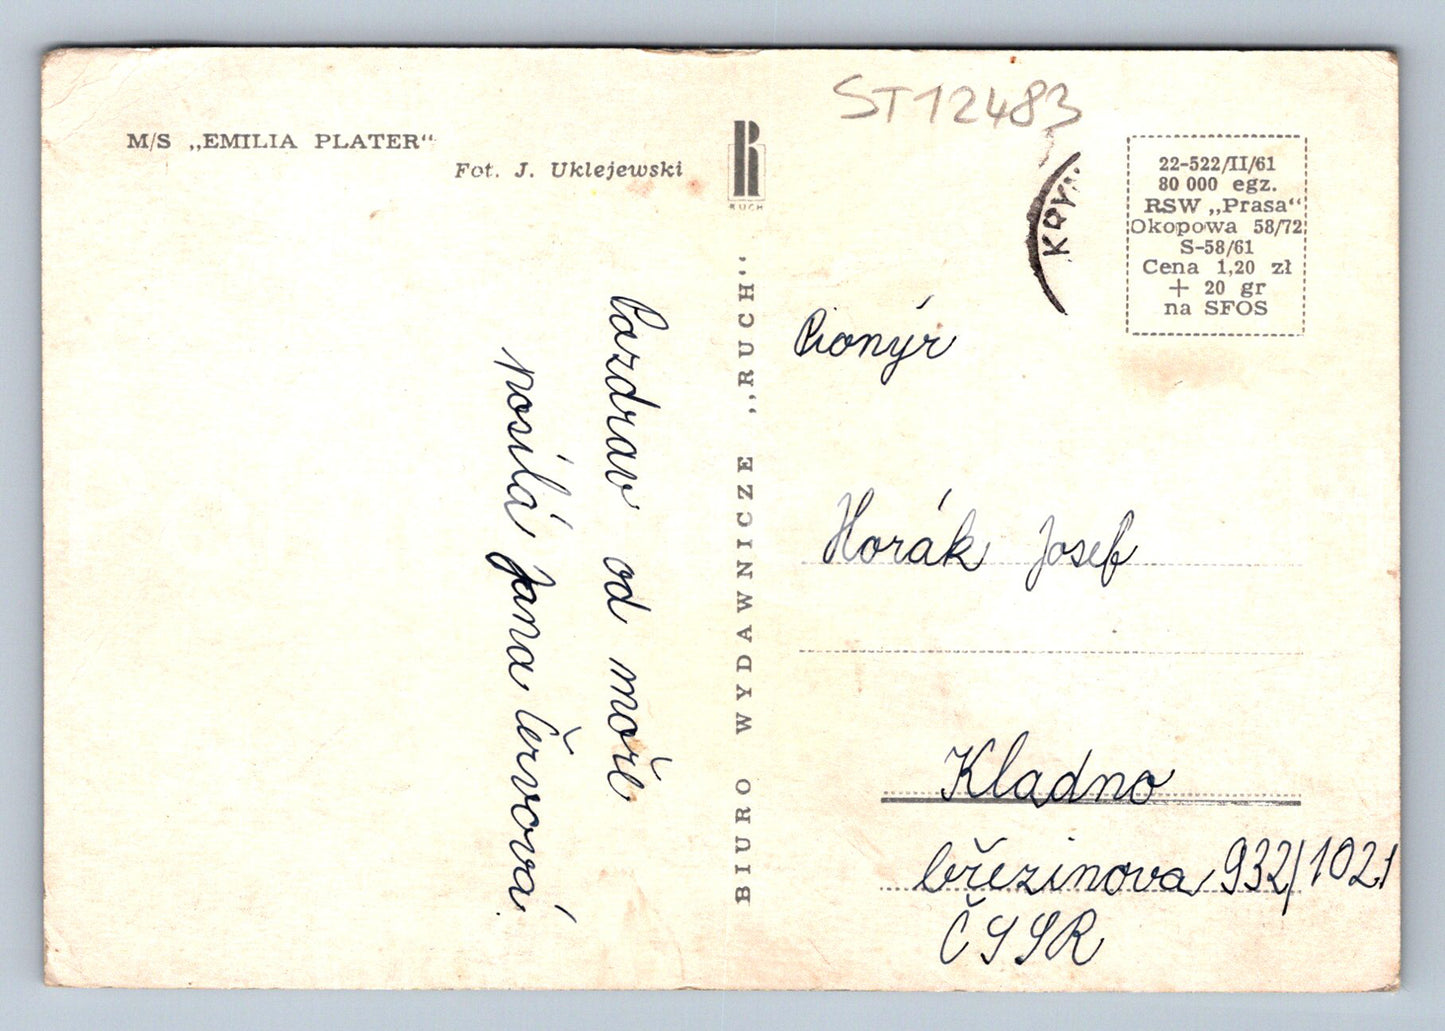 M/S „EMILIA PLATER“
Fot. J. Uklejewski
Pozdrav od moře
posílá Jana Červová.
R
RUCH
BIURO WYDAWNICZE „RUCH“
ST12483
KRYN
22-522/II/61
80 000 egz.
RSW „Prasa“
Okopowa 58/72
S-58/61
Cena 1,20 zł
+ 20 gr
na SFOS
Pionýr
Horák Josef
Kladno
březinova 932/1021
ČSSR